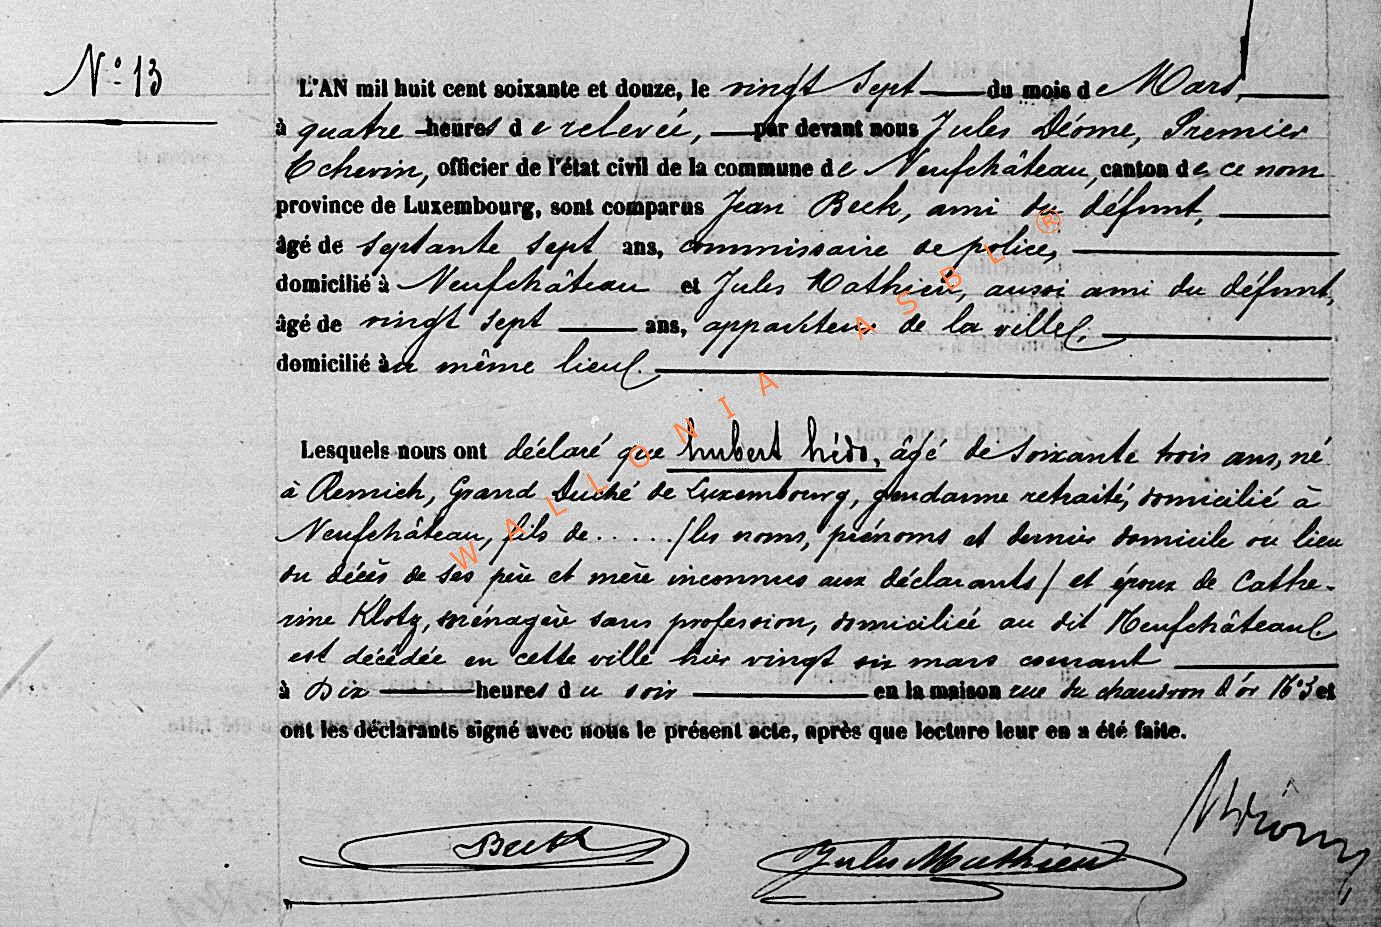 N° 13
L'AN mil huit cent soixante et douze, le vingt sept du mois de Mars,
à quatre heures de relevée, par devant nous Jules Déome, Premier
Echevin, officier de l'état civil de la commune de Neufchâteau, canton de ce nom
province de Luxembourg, sont comparus Jean Beck, ami du défunt,
âgé de septante sept ans, commissaire de police,
domicilié à Neufchâteau et Jules Mathieu, aussi ami du défunt,
âgé de vingt sept ans, appariteur de la ville.
domicilié au même lieu.
Lesquels nous ont déclaré que hubert hédo, âgé de soixante trois ans, né
à Remich, Grand Duché de Luxembourg, gendarme retraité, domicilié à
Neufchâteau, fils de ...... / les noms, prénoms et dernier domicile ou lieu
du décès de ses père et mère inconnus aux déclarants / et époux de Cathe-
rine Klotz, ménagère sans profession, domiciliée au dit Neufchâteau.
est décédée en cette ville hier vingt six mars courant
à Dix heures du soir en la maison rue du chaudron d'or N° 3 et
ont les déclarants signé avec nous le présent acte, après que lecture leur en a été faite.
Beck Jules Mathieu
WALLONIA ASBL ®